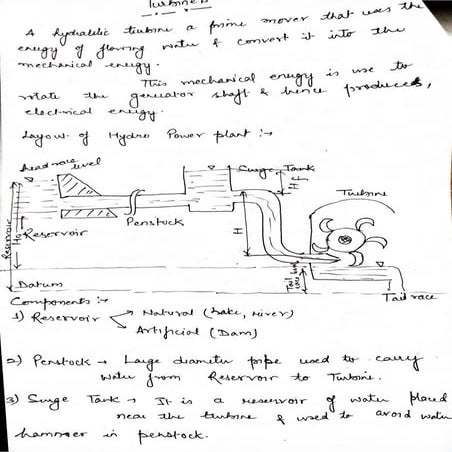 Turbines
A hydraulic turbine a prime mover that uses the
energy of flowing water & convert it into the
mechanical energy.
This mechanical energy is use to
rotate the generator shaft & hence produces,
electrical energy.
Layout of Hydro Power plant :→
head race level
Surge Tank
Turbine
Reservoir
Reservoir
Penstock
H
Datum
Tail race
Components :→
1) Reservoir
Natural (Lake, river)
Artificial (Dam)
2) Penstock → Large diameter pipe used to carry
water from Reservoir to Turbine.
3) Surge Tank → It is a reservoir of water placed
near the turbine & used to avoid water
hammer in penstock.